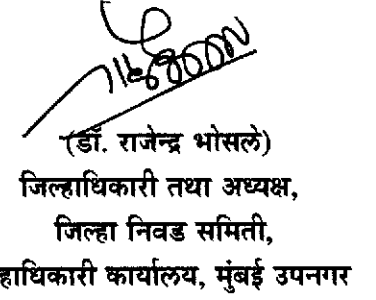 (डॉ. राजेन्द्र भोसले)
जिल्हाधिकारी तथा अध्यक्ष,
जिल्हा निवड समिती,
हाधिकारी कार्यालय, मुंबई उपनगर